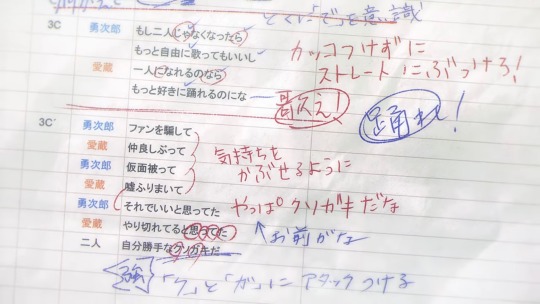 とくに「で」を意識
3C 勇次郎 もし二人じゃなくなったら
もっと自由に歌ってもいいし
愛蔵 一人になれるのなら
もっと好きに踊れるのにな
カッコつけずに
ストレートにぶつけろ！
歌え！
踊れ！
3C' 勇次郎 ファンを騙して
愛蔵 仲良しぶって
勇次郎 仮面被って
愛蔵 嘘ふりまいて
勇次郎 それでいいと思ってた
愛蔵 やり切れてると思ってた
二人 自分勝手なクソガキだ
気持ちを
かぶせるように
やっぱクソガキだな
↑お前がな
強 「ク」と「ガ」にアタックつける